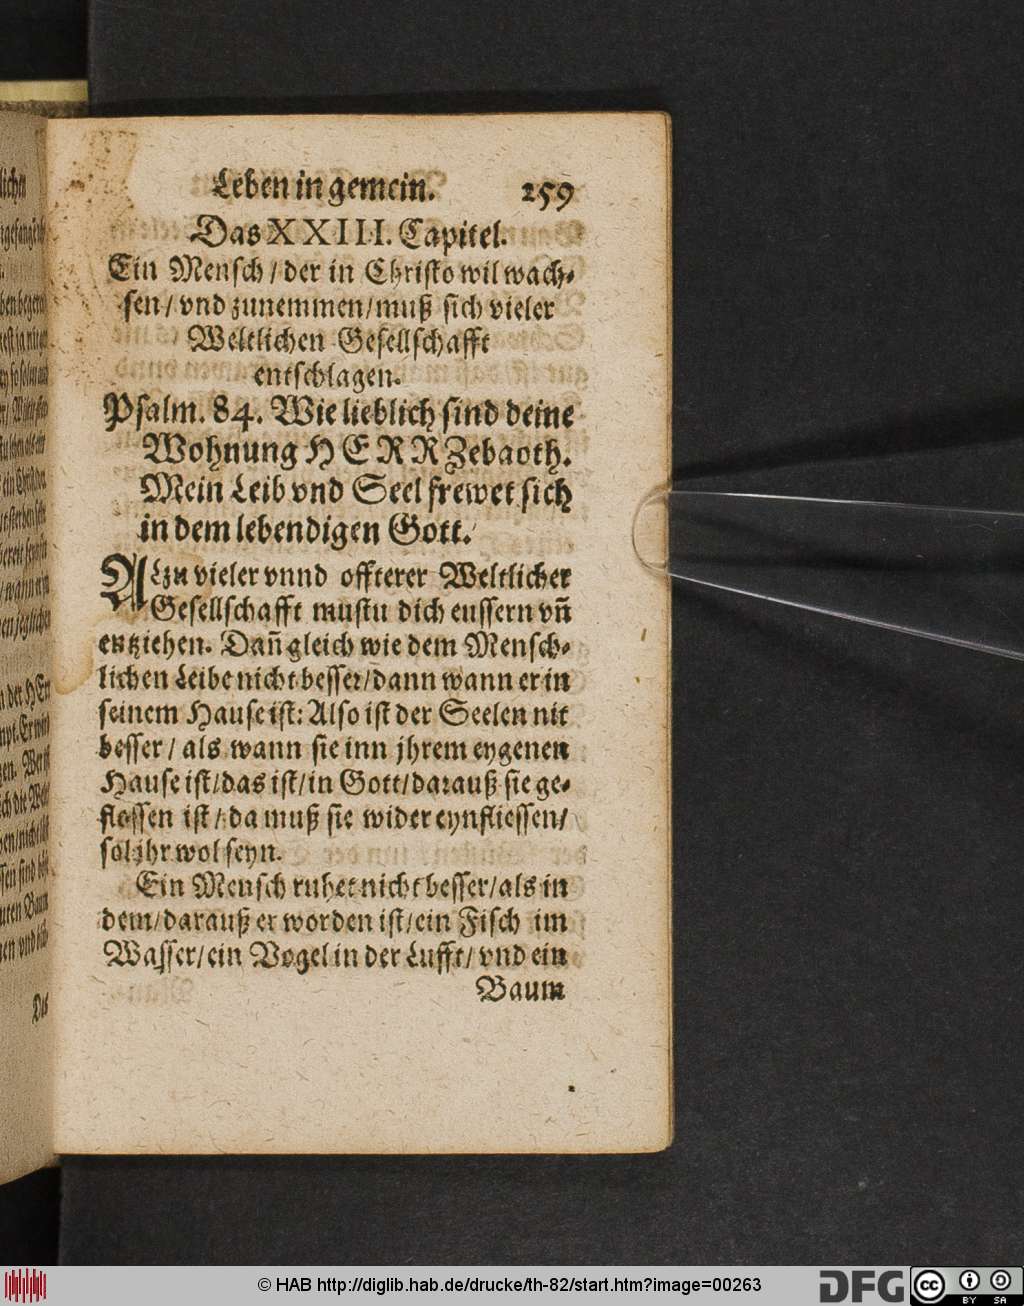 Leben in gemein. 259
Das XXIII. Capitel.
Ein Mensch / der in Christo wil wach-
sen / vnd zunemmen / muß sich vieler
Weltlichen Gesellschafft
entschlagen.
Psalm. 84. Wie lieblich sind deine
Wohnung HERR Zebaoth.
Mein Leib vnd Seel frewet sich
in dem lebendigen Gott.
Alzu vieler vnnd offterer Weltlicher
Gesellschafft mustu dich eussern vn̄
entziehen. Dan̄ gleich wie dem Mensch-
lichen Leibe nicht besser / dann wann er in
seinem Hause ist: Also ist der Seelen nit
besser / als wann sie inn jhrem eygenen
Hause ist / das ist / in Gott / darauß sie ge-
flossen ist / da muß sie wider eynfliessen /
sol jhr wol seyn.
Ein Mensch ruhet nicht besser / als in
dem / darauß er worden ist / ein Fisch im
Wasser / ein Vogel in der Lufft / vnd ein
Baum
© HAB http://diglib.hab.de/drucke/th-82/start.htm?image=00263
DFG
cc BY SA